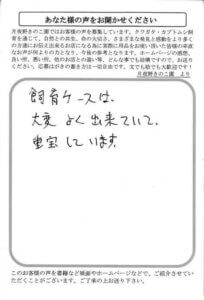 あなた様の声をお聞かせください
月夜野きのこ園ではお客様の声を募集しています。クワガタ・カブトムシ飼
育を通じて、自然との共生、命の大切さ、さまざまな発見と感動をより多く
の方達にお伝え出来るお店になる為に実際に用品をお使い頂いた皆様の率直
なお声が何よりの力となり、今後の参考となります。ホームページの感想、
良い所、悪い所、他のお店との違い等、どんな事でも結構ですので、お送り
ください。応募はがきの書き方は一切自由です。文でも絵でも大歓迎です！
月夜野きのこ園 より
飼育ケースは、
大変よく出来ていて、
重宝しています。
このお客様の声を書籍など紙面やホームページなどで、ご紹介させていた
だくことがございます。ご了承の上お送り下さい。